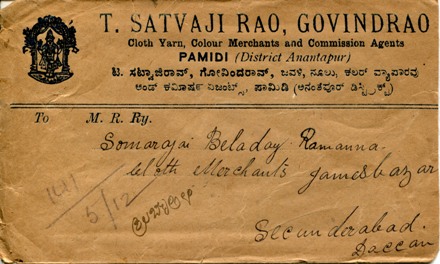 T. SATVAJI RAO, GOVINDRAO
Cloth Yarn, Colour Merchants and Commission Agents
PAMIDI (District Anantapur)
ಟಿ. ಸಟ್ವಾಜಿರಾವ್, ಗೋವಿಂದರಾವ್, ಜವಳಿ, ನೂಲು, ಕಲರ್ ವ್ಯಾಪಾರವು
ಅಂಡ್ ಕಮಿಷನ್ ಏಜಂಟ್ಸ್, ಪಾಮಿಡಿ (ಅನಂತಪೂರ್ ಡಿಸ್ಟ್ರಿಕ್ಟ್)
To M. R. Ry.
Somarajai Beladay Ramanna
Cloth Merchants Jamesbazar
5/12
Secunderabad.
Daccan